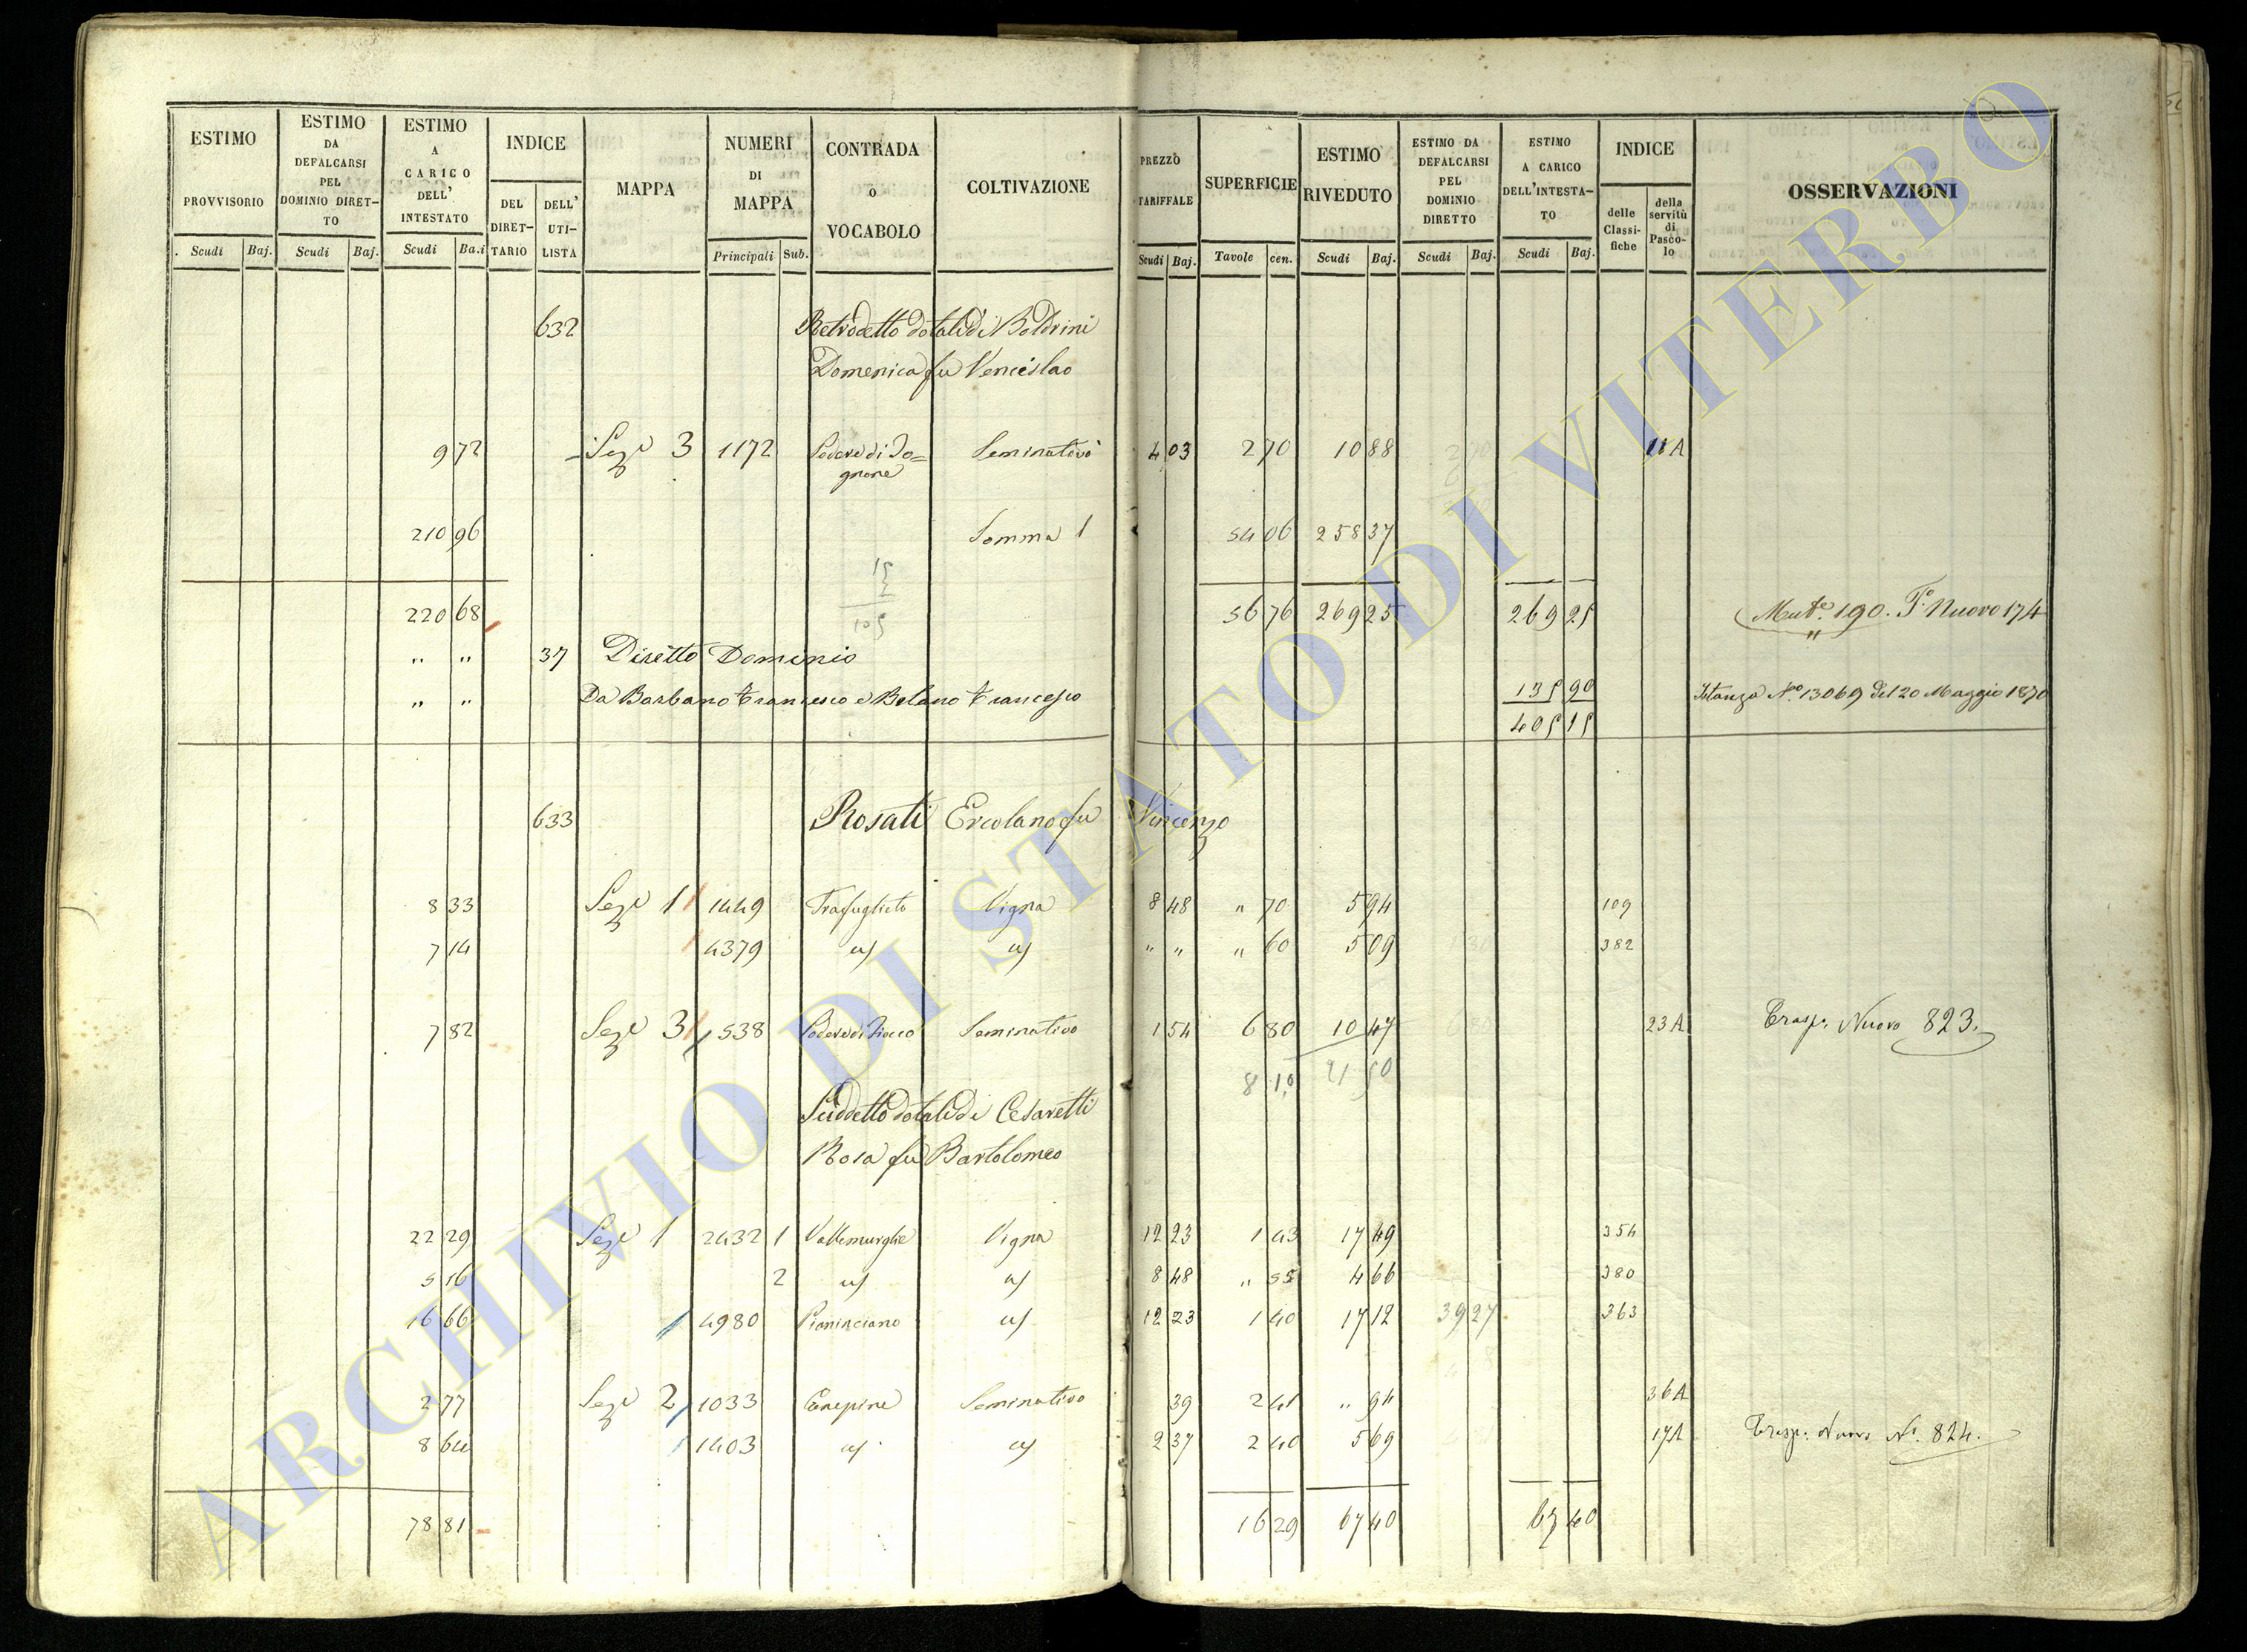 ESTIMO PROVVISORIO
ESTIMO DA DEFALCARSI PEL DOMINIO DIRETTO
ESTIMO A CARICO DELL' INTESTATO
INDICE
DEL DIRETTARIO
DELL' UTILISTA
MAPPA
NUMERI DI MAPPA
CONTRADA o VOCABOLO
COLTIVAZIONE
PREZZO TARIFFALE
SUPERFICIE
ESTIMO RIVEDUTO
ESTIMO DA DEFALCARSI PEL DOMINIO DIRETTO
ESTIMO A CARICO DELL'INTESTATO
INDICE
delle Classifiche
della servitù di Pascolo
OSSERVAZIONI
Scudi Baj. Scudi Baj. Scudi Ba.i Principali Sub. Scudi Baj. Tavole cen. Scudi Baj. Scudi Baj. Scudi Baj.
632 Retrodetto dotali di Boldrini
Domenica fu Venceslao
9 72 Seze 3 1172 Podere di To= Seminativo 4 03 2 70 10 88 11 A
gnone
210 96 Somma 1 54 06 258 37
220 68 56 76 269 25 269 25 Mut.e 190. P.o Nuovo 174
" " 37 Diretto Dominio
" " Da Barbano Francesco e Belano Francesco 135 90 Istanza N.o 13069 del 20 Maggio 1870
405 15
633 Rosati Ercolano fu Vincenzo
8 33 Seze 1 1449 Trafuglieto Vigna 8 48 " 70 5 94 109
7 14 4379 " " " 60 5 09 382
7 82 Seze 3 538 Podere di Fiocco Seminativo 1 54 6 80 10 47 23 A Trasp. Nuovo 823.
8 10 21 50
Suddetto dotali di Cesaretti
Rosa fu Bartolomeo
22 29 Seze 1 2432 1 Vallemurghe Vigna 12 23 1 43 17 49 354
5 16 2 8 48 " 55 4 66 380
16 66 4980 Pianinciano 12 23 1 40 17 12 39 27 363
2 77 Seze 2 1033 Canepine Seminativo 39 2 41 " 94 36 A
8 64 1403 2 37 2 40 5 69 17 A Trasp. Nuovo N.o 824.
78 81 16 29 67 40 67 40
ARCHIVIO DI STATO DI VITERBO